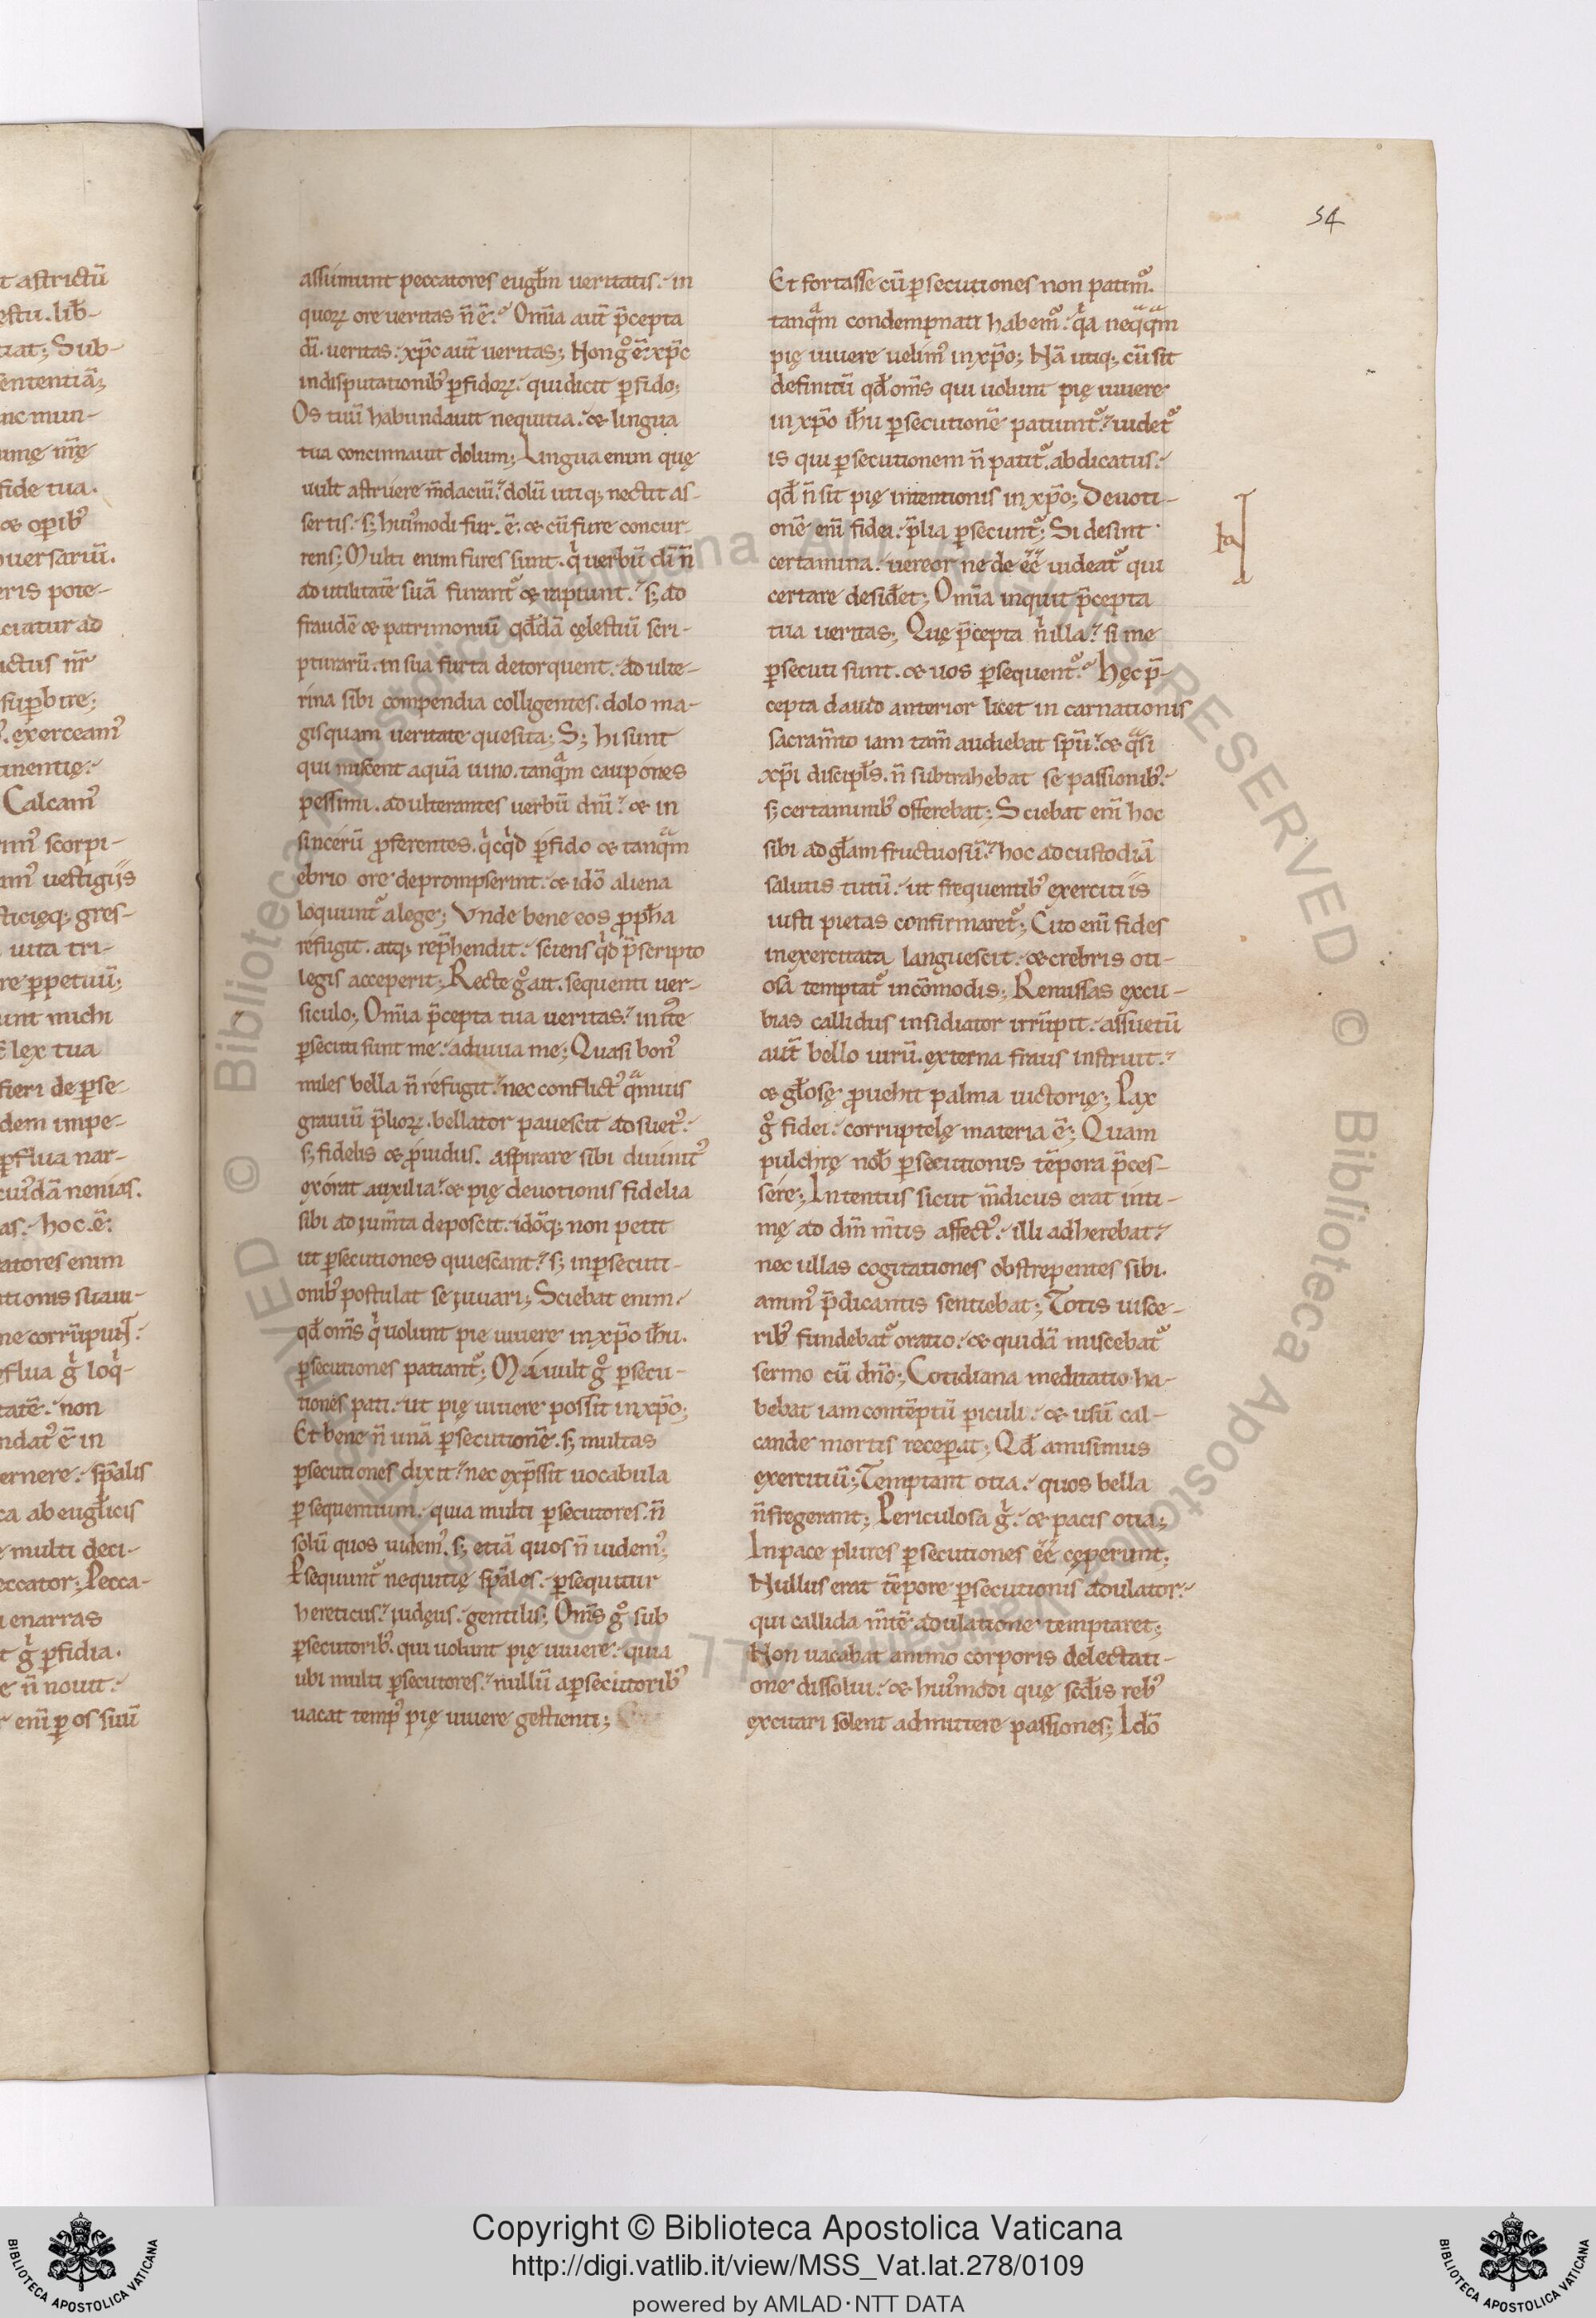 54
assumunt peccatores eugl̄m ueritatis. in
quorꝝ ore ueritas n̄ ē. Om̄ia aut̄ p̄cepta
dī. ueritas. xp̄c aut̄ ueritas; Non gͦ ē xp̄c
in disputationib᾽ ꝑfidorꝝ. qui dicit ꝑfido;
Os tuū habundauit nequitia. & lingua
tua concinnauit dolum; Lingua enim quę
uult astruere m̄daciū. dolū utiq; nectit as-
sertis. s; hui᾽modi fur. ē. & cū fure concur-
rens; Multi enim fures sunt. qͥ uerbū dī n̄
ad utilitatē suā furant᾽ & rapiunt. s; ad
fraudē & patrimoniū qd̄dā cęlestiū scri-
pturarū. in sua furta detorquent. adulte-
rina sibi compendia colligentes. dolo ma-
gis quam ueritate quesita; S; hi sunt
qui miscent aquā uino. tanqᵃ̄m caupones
pessimi. adulterantes uerbū dn̄i. & in
sincerū ꝓferentes. qͥcqͥd ꝑfido & tanqᵃ̄m
ebrio ore deprompserint. & idō aliena
loquunt᾽ a lege; Vnde bene eos ꝓph̄a
refugit. atq; rep̄hendit. sciens qͥd p̄scripto
legis acceperit; Recte gͦ ait. sequenti uer-
siculo; Om̄ia p̄cepta tua ueritas. iniq̄
ꝑsecuti sunt me. adiuua me; Quasi bon᾽
miles bella n̄ refugit. nec conflict᾽ qᵃ̄muis
grauiū p̄liorꝝ. bellator pauescit adsuet᾽.
s; fidelis & ꝓuidus. aspirare sibi diuinit᾽
exorat auxilia. & pię deuotionis fidelia
sibi adium̄ta deposcit. idōq; non petit
ut ꝑsecutiones quiescant. s; in ꝑsecuti-
onib᾽ postulat se iuuari; Sciebat enim.
qd̄ om̄s qͥ uolunt pie uiuere in xp̄o ih̄u.
ꝑsecutiones patiant᾽; Mauult gͦ ꝑsecu-
tiones pati. ut pię uiuere possit in xp̄o;
Et bene n̄ unā ꝑsecutionē. s; multas
ꝑsecutiones dixit. nec exp̄ssit uocabula
ꝑsequentium. quia multi ꝑsecutores. n̄
solū quos uidem᾽. s; etiā quos n̄ uidem᾽;
Ꝑsequunt᾽ nequitię sp̄ales. ꝑsequitur
hereticus. iudęus. gentilis; Om̄s gͦ sub
ꝑsecutorib᾽. qui uolunt pię uiuere. quia
ubi multi ꝑsecutores. nullū a ꝑsecutorib᾽
uacat temp᾽ pię uiuere gestienti;
Et fortasse cū ꝑsecutiones non patim᾽.
tanqᵃ̄m condempnati habem᾽. qͥa neqᵃqᵃ̄m
pię uiuere uelim᾽ in xp̄o; Nā utiq; cū sit
definitū qd̄ om̄s qui uolunt pię uiuere
in xp̄o ih̄u ꝑsecutionē patiunt᾽. uidet᾽
is qui ꝑsecutionem n̄ patit᾽. abdicatus.
qd̄ n̄ sit pię intentionis in xp̄o; Deuoti-
onē eni᾽ fidei. p̄lia ꝑsecunt᾽; Si desint
certamina. uereor ne de ēē uideat᾽ qui
certare desid̄et; Om̄ia inquit p̄cepta
tua ueritas; Quę p̄cepta n̄ illa. si me
ꝑsecuti sunt. & uos ꝑsequent᾽. Hęc p̄-
cepta dauid anterior licet in carnationis
sacram̄to iam tam̄ audiebat sp̄u. & qᵃsi
xp̄i discipl̄s. n̄ subtrahebat se passionib᾽.
s; certaminib᾽ offerebat; Sciebat eni᾽ hoc
sibi ad gl̄am fructuosū. hoc ad custodiā
salutis tutū. ut frequentib᾽ exercitiis
iusti pietas confirmaret᾽; Cito eni᾽ fides
inexercitata languescit. & crebris oti-
osa temptat᾽ incōmodis; Remissas excu-
bias callidus insidiator irrūpit. assuetū
aut̄ bello uirū. externa fraus instruit.
& gl̄osę ꝓuehit palma uictorię; Pax
gͦ fidei. corruptelę materia ē; Quam
pulchrę nob̄ ꝑsecutionis tēpora p̄ces-
sere; Intentus sicut m̄dicus erat inti-
mę ad dm̄ m̄tis affect᾽. illi adherebat.
nec ullas cogitationes obstrepentes sibi.
anim᾽ p̄dicantis sentiebat; Totis uisce-
rib᾽ fundebat᾽ oratio. & quidā miscebat᾽
sermo cū dn̄o; Cotidiana meditatio ha-
bebat iam contēptū ꝑiculi. & usū cal-
cande mortis receꝑat; Qd̄ amisimus
exercitiū; Temptant otia. quos bella
n̄ fregerant; Periculosa gͥ. & pacis otia;
In pace plures ꝑsecutiones ēē cęperunt;
Nullus erat tēpore ꝑsecutionis adulator.
qui callida m̄te adulatione temptaret;
Non uacabat animo corporis delectati-
one dissolui. & hui᾽modi quę scd̄is reb᾽
excitari solent admittere passiones; Idō
Copyright © Biblioteca Apostolica Vaticana
http://digi.vatlib.it/view/MSS_Vat.lat.278/0109
powered by AMLAD·NTT DATA